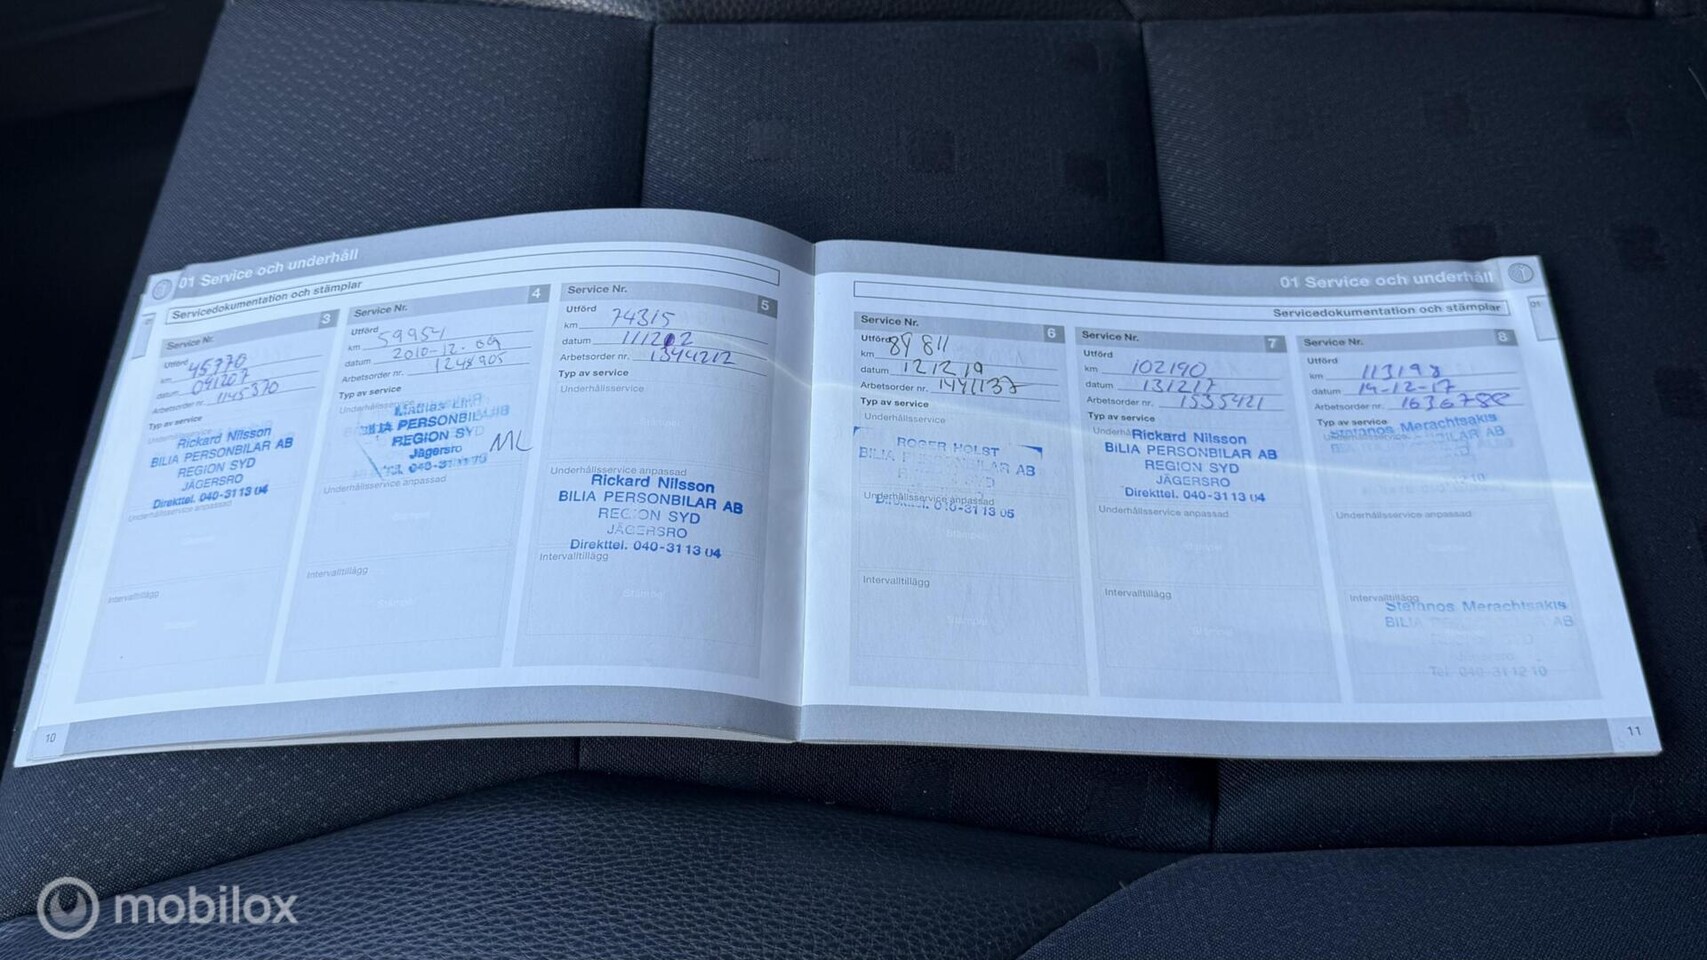 01 Service och underhåll
Servicedokumentation och stämplar
Service Nr. 3
Utförd
km 45770
datum 091207
Arbetsorder nr. 1145370
Typ av service
Underhållsservice
Rickard Nilsson
BILIA PERSONBILAR AB
REGION SYD
JÄGERSRO
Direkttel. 040-31 13 04
Underhållsservice anpassad
Intervalltillägg
Service Nr. 4
Utförd
km 59954
datum 2010-12-09
Arbetsorder nr. 1248905
Typ av service
Underhållsservice
BILIA PERSONBILAR AB
REGION SYD
Jägersro
ML
Underhållsservice anpassad
Intervalltillägg
Service Nr. 5
Utförd
km 74315
datum 111202
Arbetsorder nr. 1344212
Typ av service
Underhållsservice
Underhållsservice anpassad
Rickard Nilsson
BILIA PERSONBILAR AB
REGION SYD
JÄGERSRO
Direkttel. 040-31 13 04
Intervalltillägg
Stämpel
10
01 Service och underhåll
Servicedokumentation och stämplar
Service Nr. 6
Utförd
km 89811
datum 121219
Arbetsorder nr. 1441137
Typ av service
Underhållsservice
ROGER HOLST
BILIA PERSONBILAR AB
REGION SYD
Underhållsservice anpassad
Direkttel. 040-31 13 05
Stämpel
Intervalltillägg
Stämpel
Service Nr. 7
Utförd
km 102190
datum 131217
Arbetsorder nr. 1535421
Typ av service
Rickard Nilsson
BILIA PERSONBILAR AB
REGION SYD
JÄGERSRO
Direkttel. 040-31 13 04
Underhållsservice anpassad
Intervalltillägg
Stämpel
Service Nr. 8
Utförd
km 113198
datum 14-12-17
Arbetsorder nr. 1636788
Typ av service
Stefanos Merachtsakis
Underhållsservice anpassad
Intervalltillägg
Stefanos Merachtsakis
BILIA
AB
Tel 040-31 12 10
11
mobilox